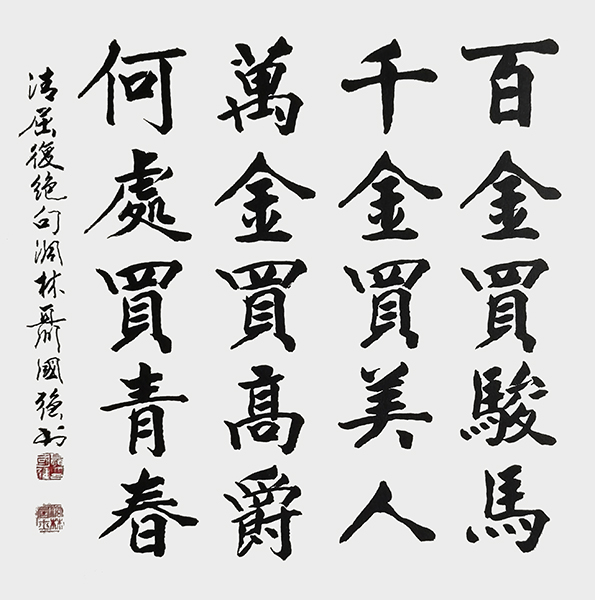 百金買駿馬
千金買美人
萬金買高爵
何處買青春
清屈復絕句澗林聶國強書